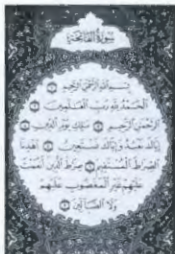 سورة الفاتحة
بسم الله الرحمن الرحيم
الحمد لله رب العالمين
الرحمن الرحيم ملك يوم الدين
إياك نعبد وإياك نستعين اهدنا
الصراط المستقيم صراط الذين أنعمت
عليهم غير المغضوب عليهم
ولا الضالين